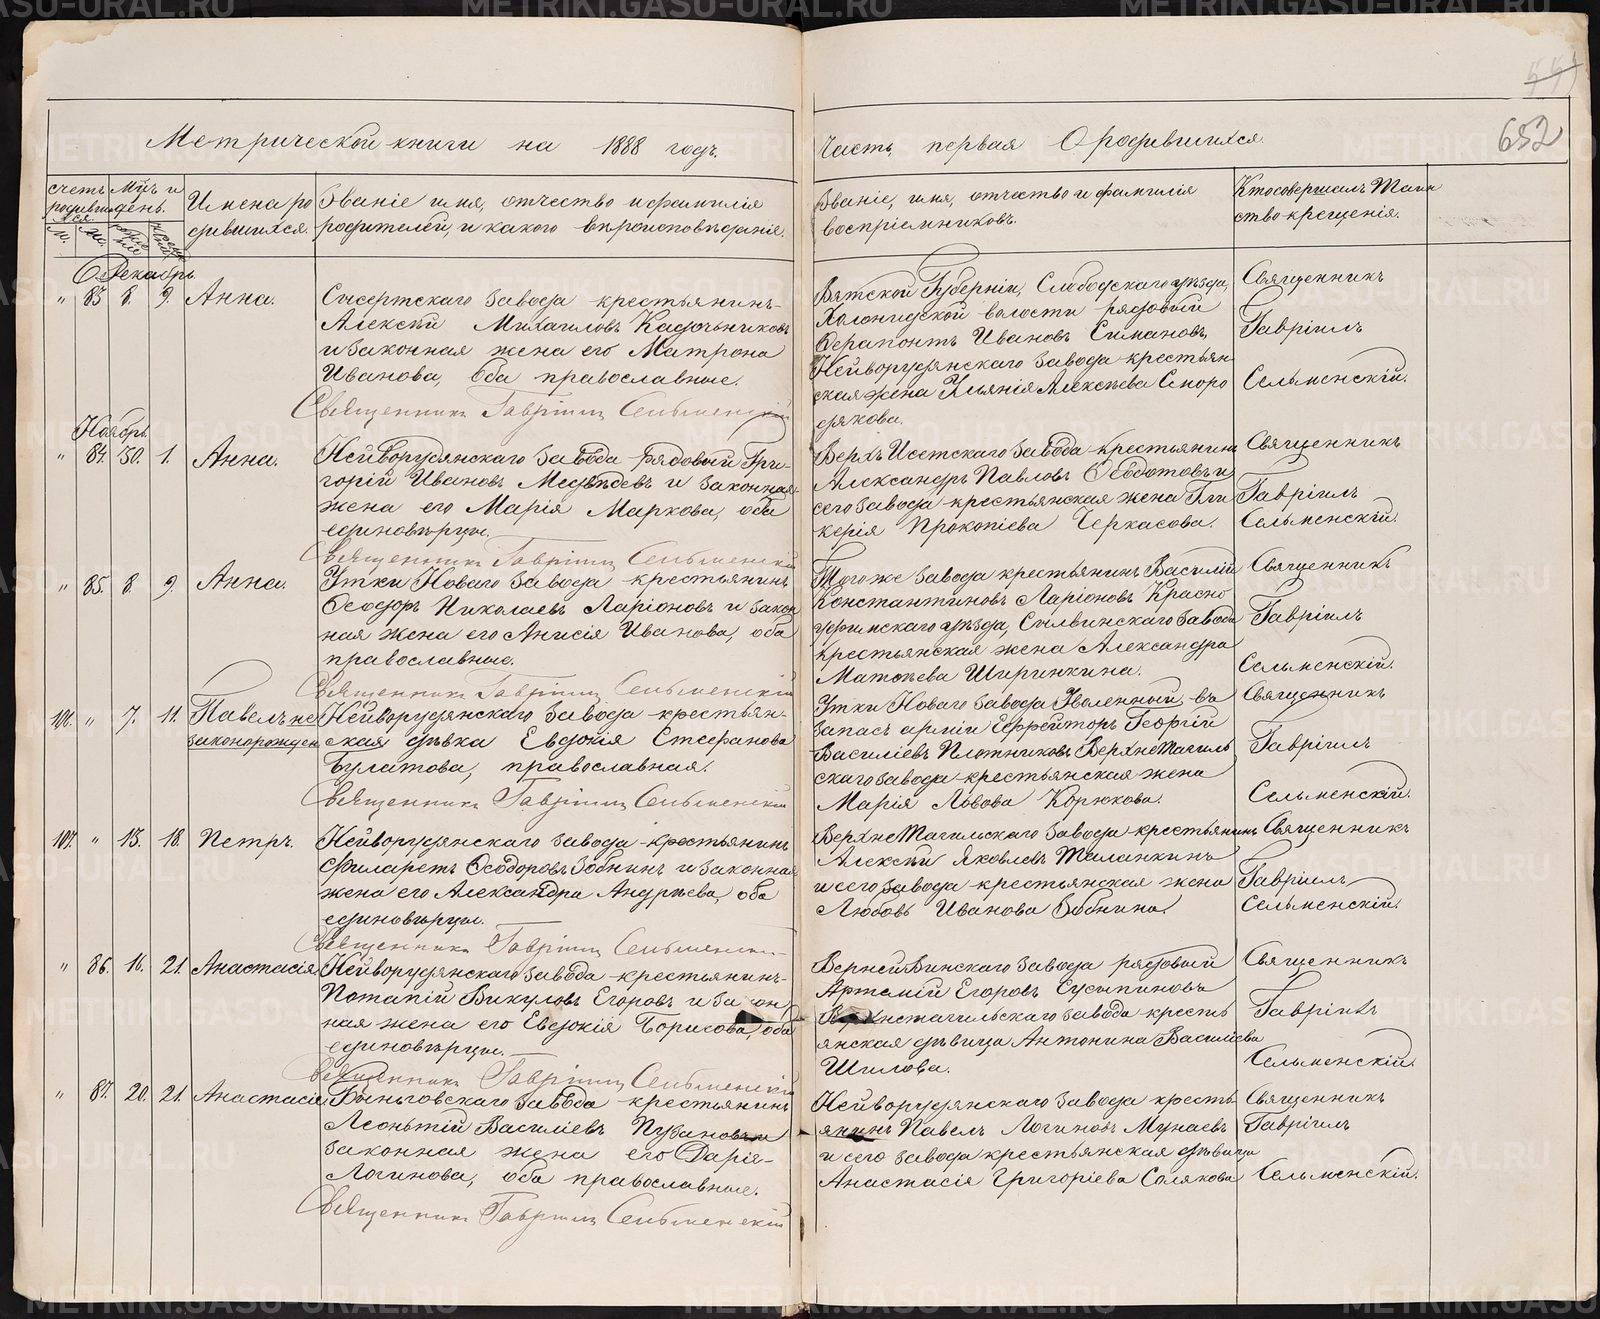 652
Метрической книги на 1888 годъ.
Часть первая О родившихся
счетъ родившихся
Мцъ и день.
Имена родившихся.
Званіе имя, отчество и фамилія
родителей, и какого вѣроисповѣданія.
Званіе, имя, отчество и фамилія
воспріемниковъ.
Кто совершалъ Таин
ство крещенія.
М.
Ж.
Декабрь
" 83 8. 9. Анна.
Сысертскаго завода крестьянинъ
Алексѣй Михаиловъ Кадочниковъ
и законная жена его Матрона
Иванова, оба православные.
Священникъ Гавріилъ Сельменскій
Вятской Губерніи, Слободскаго уѣзда,
волости рядовый
Ферапонтъ Ивановъ Симановъ,
Нейворудянскаго завода крестьян
ская жена Ульянія Алексѣева Скоро
дякова.
Священникъ
Гавріилъ
Сельменскій.
Ноябрь
" 84. 30. 1. Анна.
Нейворудянскаго завода рядовый Гри
горій Ивановъ Медвѣдевъ и законная
жена его Марія Маркова, оба
единовѣрцы.
Священникъ Гавріилъ Сельменскій
Верхъ Исетскаго завода крестьянинъ
Александръ Павловъ Ѳедотовъ и
сего завода крестьянская жена Гли
керія Прокопіева Черкасова.
Священникъ
Гавріилъ
Сельменскій.
" 85. 8. 9. Анна.
Утки Новаго завода крестьянинъ
Ѳеодоръ Николаевъ Ларіоновъ и закон
ная жена его Анисія Иванова, оба
православные.
Священникъ Гавріилъ Сельменскій
Того же завода крестьянинъ Василій
Константиновъ Ларіоновъ Красно
уфимскаго уѣзда, Сылвинскаго завода
крестьянская жена Александра
Матвѣева Ширинкина.
Священникъ
Гавріилъ
Сельменскій.
101. " 7. 11. Павелъ не
законорожден
Нейворудянскаго завода крестьян
ская дѣвка Евдокія Стефанова
Булатова, православная.
Священникъ Гавріилъ Сельменскій
Утки Новаго завода Уволенный въ
запасъ арміи Ефрейторъ Георгій
Василіевъ Плотниковъ Верхнетагиль
скаго завода крестьянская жена
Марія Львова Корюкова.
Священникъ
Гавріилъ
Сельменскій.
" 13. 18. Петръ.
Нейворудянскаго завода крестьянинъ
Филаретъ Ѳеодоровъ Зобнинъ и законная
жена его Александра Андреева, оба
единовѣрцы.
Священникъ Гавріилъ Сельменскій
Верхнетагильскаго завода крестьянинъ
Алексѣй Яковлевъ Маланкинъ
и сего завода крестьянская жена
Любовь Иванова Зобнина.
Священникъ
Гавріилъ
Сельменскій.
" 86. 16. 21. Анастасія
Нейворудянскаго завода крестьянинъ
Потапій Викуловъ Егоровъ и закон
ная жена его Евдокія Борисова, оба
единовѣрцы.
Священникъ Гавріилъ Сельменскій
завода рядовый
Артемій Егоровъ Сусыпиновъ
Верхнетагильскаго завода кресть
янская дѣвица Антонина Василіева
Шилова.
Священникъ
Гавріилъ
Сельменскій.
" 87. 20. 21. Анастасія
Быньговскаго завода крестьянинъ
Леонтій Василіевъ Пузановъ и
законная жена его Дарія
Логинова, оба православные.
Священникъ Гавріилъ Сельменскій
Нейворудянскаго завода кресть
янинъ Павелъ Логиновъ Мунаевъ
и сего завода крестьянская дѣвица
Анастасія Григоріева Солякова
Священникъ
Гавріилъ
Сельменскій.
METRIKI.GASU-URAL.RU